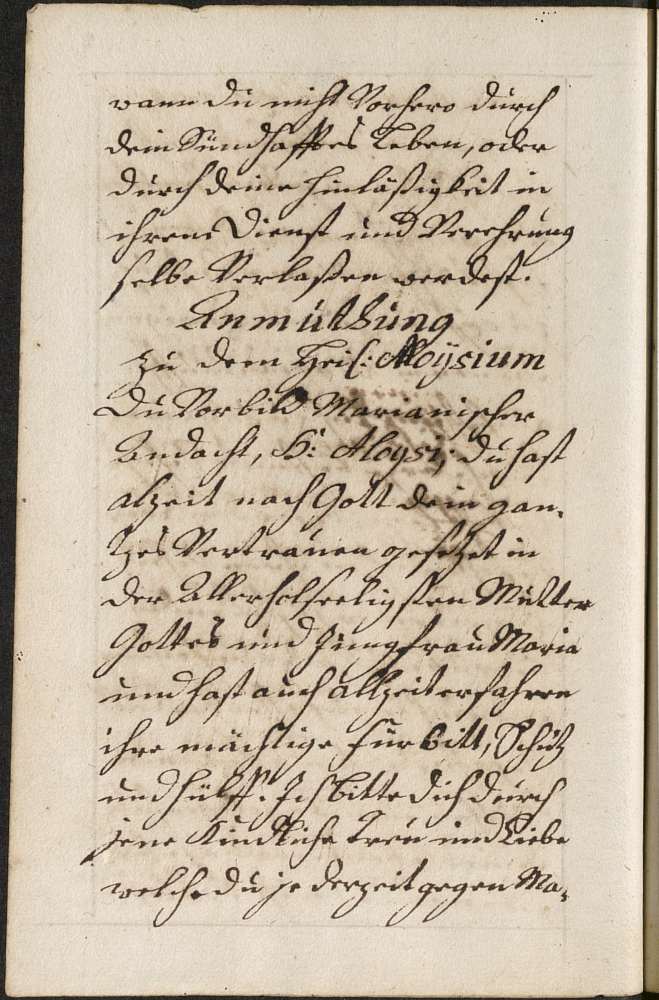 wann du nicht Vorhero durch
dein Sündhafftes Leben, oder
durch deine hinläßigkeit in
ihrem Dienst und Verehrung
selbe Verlaßen werdest.
Anmüthung
zu dem Heil: Aloÿsium
Du Vorbild Marianischer
Andacht, H: Aloysi; du hast
alzeit nach Gott dein gan„
tzes Vertrauen gesetzet in
der Allerholseeligsten Mutter
Gottes und Jungfrau Maria
und hast auch allzeit erfahren
ihre mächtige fürbitt, Schutz
und hülff. Ich bitte dich durch
jene Kindliche Treu und Liebe
welche du jederzeit gegen Ma„